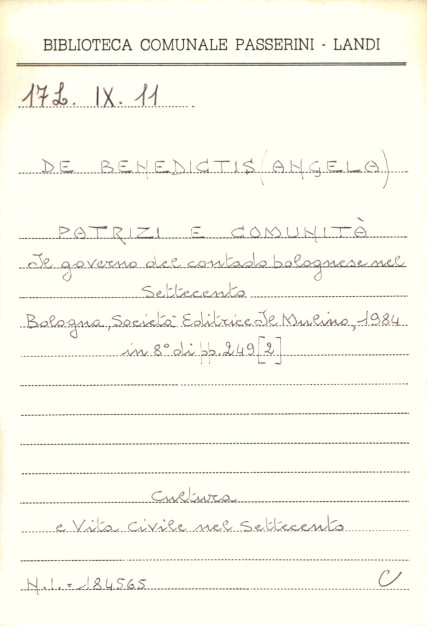 BIBLIOTECA COMUNALE PASSERINI - LANDI
17L. IX. 11
DE BENEDICTIS (ANGELA)
PATRIZI E COMUNITÀ
Il governo del contado bolognese nel
Settecento
Bologna, Società Editrice Il Mulino, 1984
in 8° di pp. 249 [2]
Cultura
e Vita Civile nel Settecento
N.I. = 184565
C